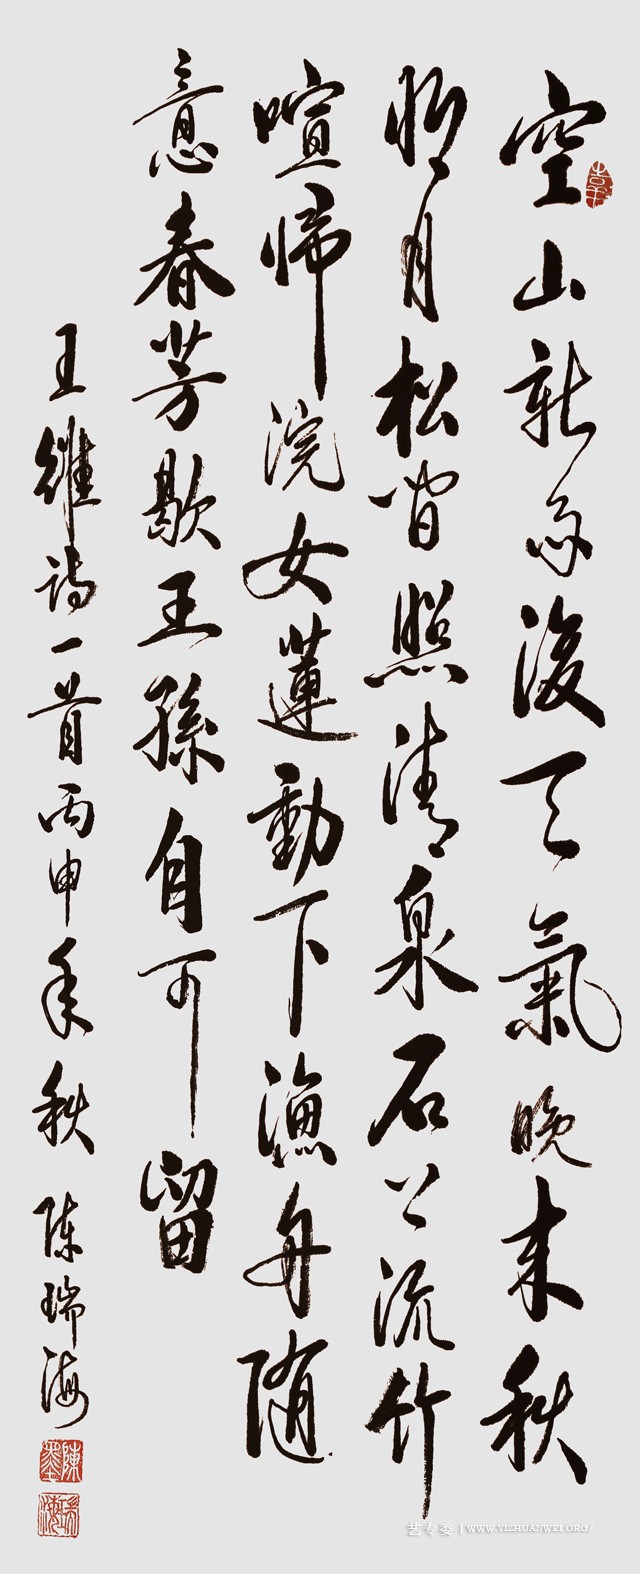 空山新雨後天氣晚来秋
明月松間照清泉石上流竹
喧歸浣女蓮動下漁舟随
意春芳歇王孫自可留
王維詩一首丙申年秋 陈瑞海
艺专委 | WWW.YIZHUANWEI.ORG/